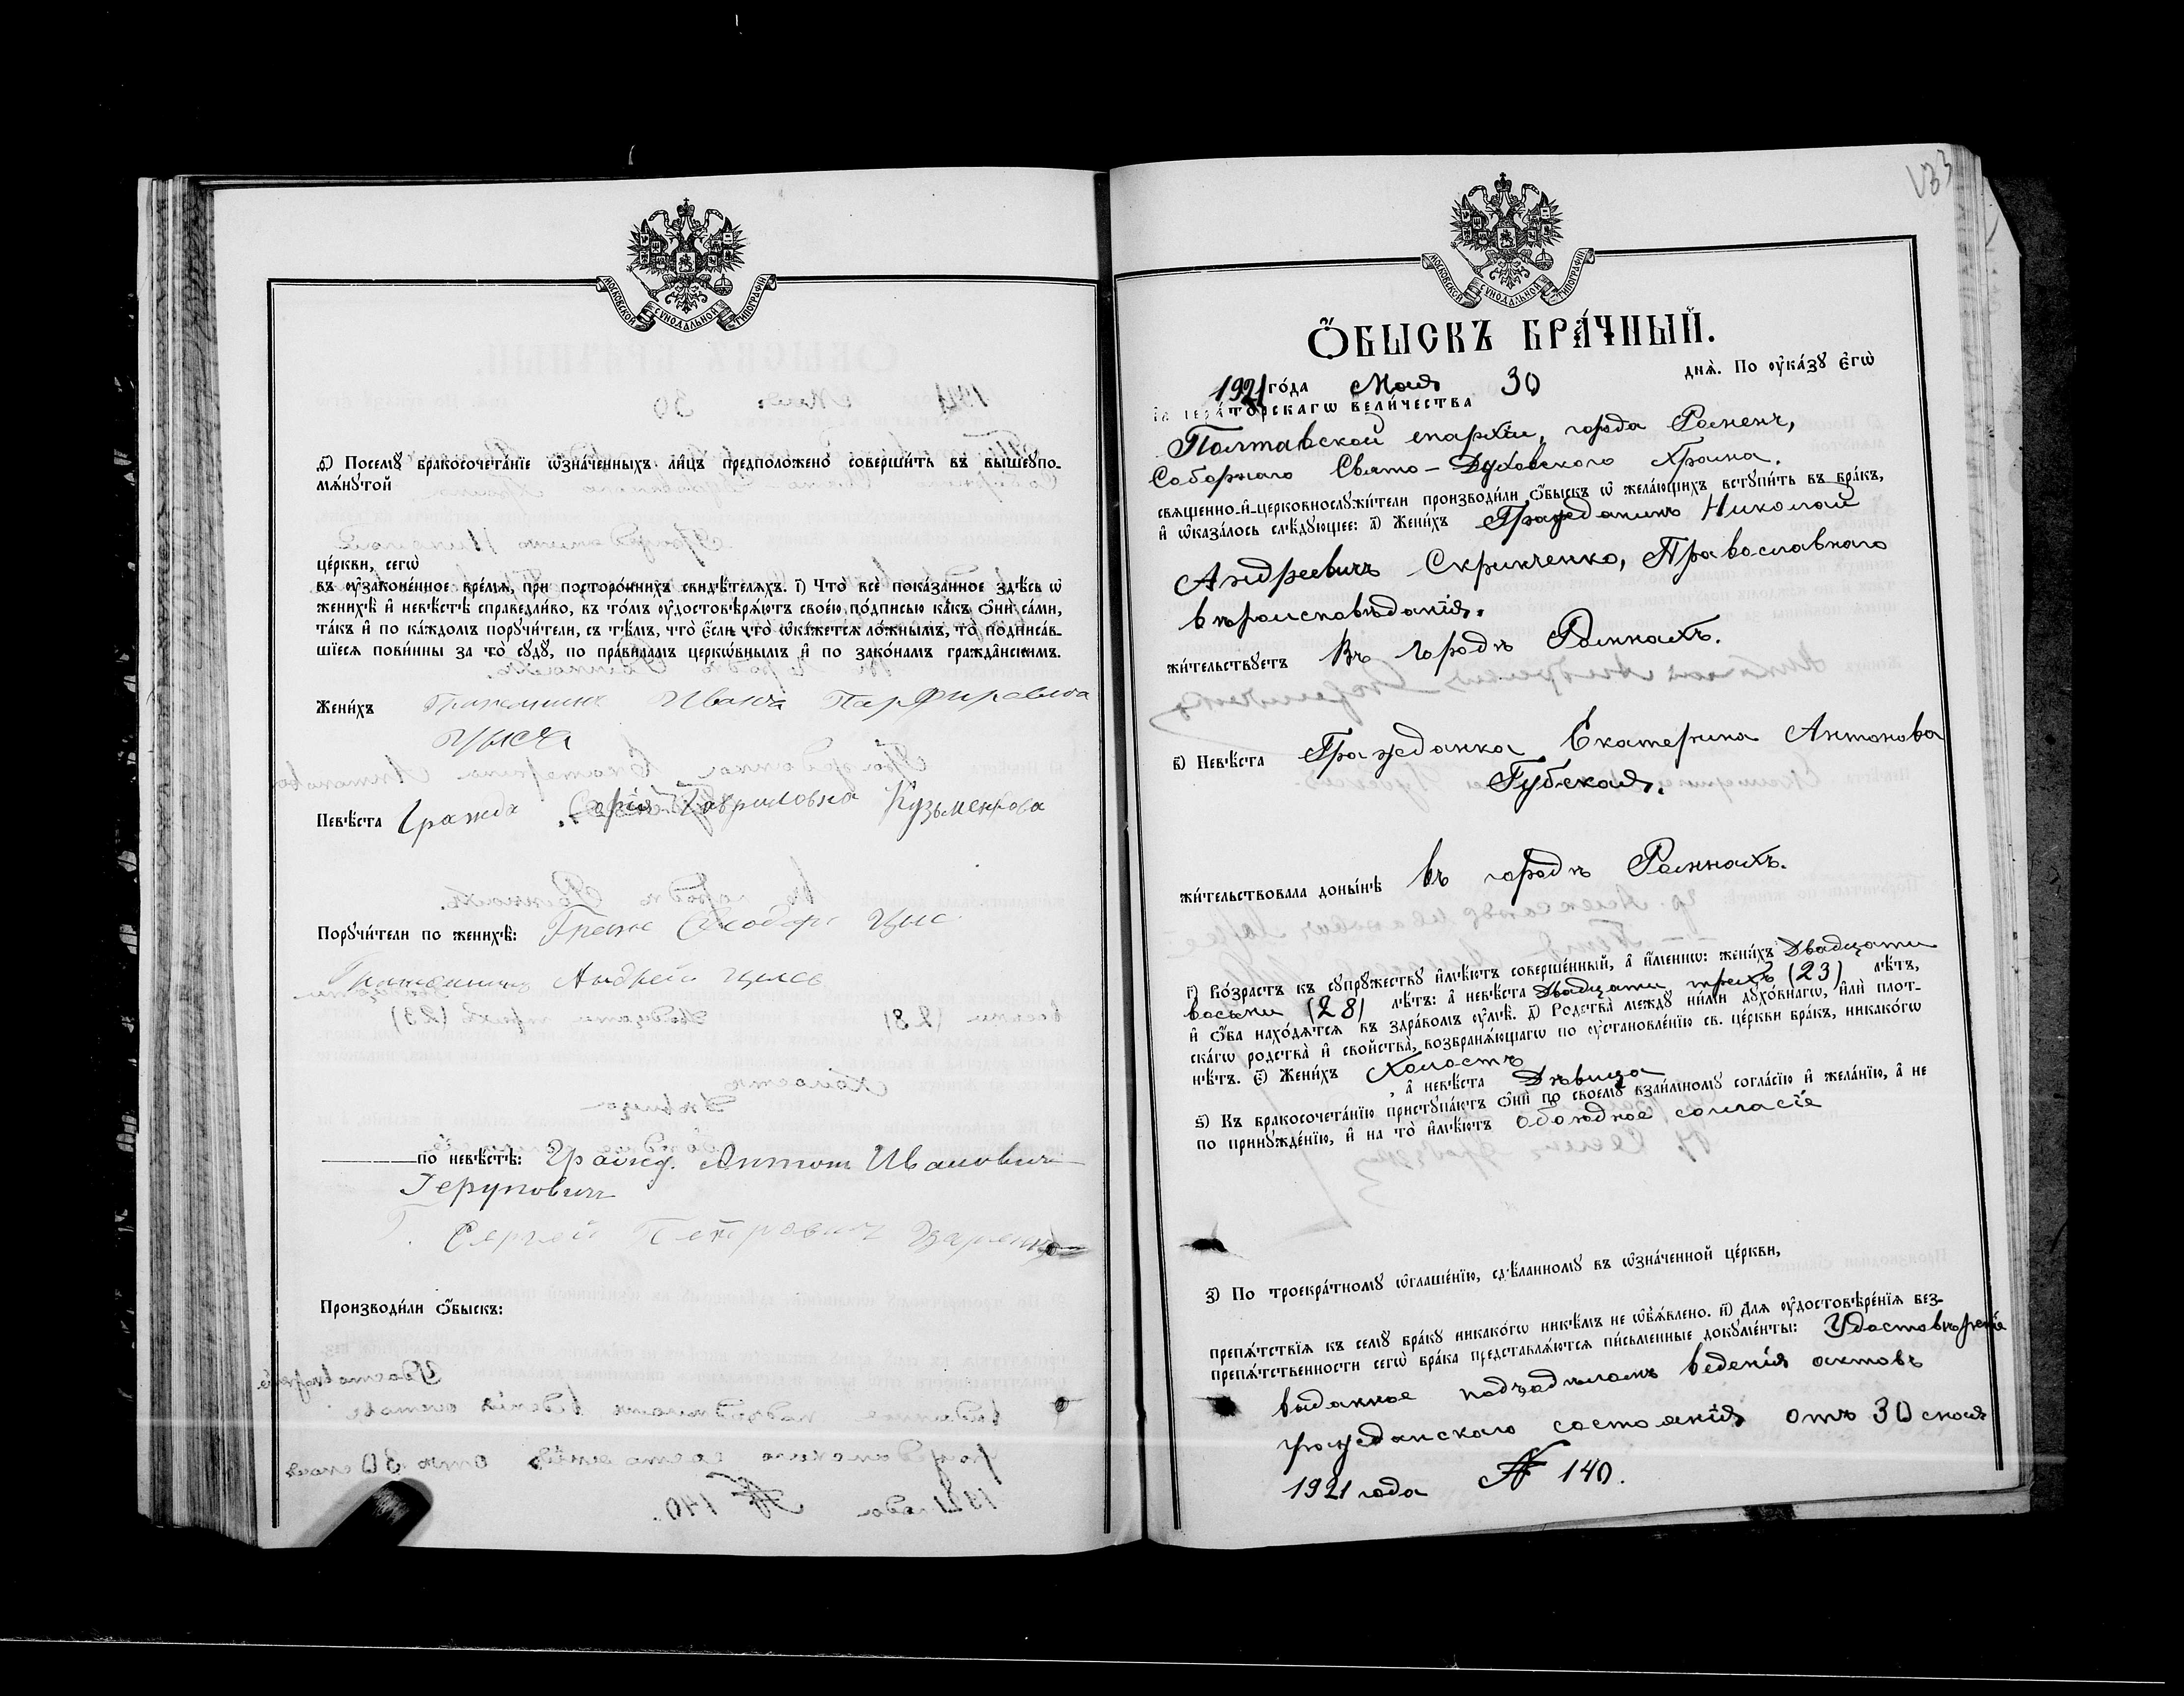 МОСКОВСКОЙ СѴНОДАЛЬНОЙ ТИПОГРАФІИ
д҃) Посемꙋ бракосочета́нїе ѡ҆зна́ченныхъ ли́цъ предположено̀ соверши́ть въ вышеꙋпо-
мѧ́нꙋтой
це́ркви, сегѡ̀
въ ᲂу҆зако́ненное вре́мѧ, при посторо́ннихъ свидѣ́телѧхъ. і҃) Что̀ всѐ пока́занное здѣ́сь ѡ҆
женихѣ̀ и҆ невѣ́стѣ справедли́во, въ то́мъ ᲂу҆достовѣрѧ́ютъ свое́ю по́дписью ка́къ ѻ҆нѝ са́ми,
та́къ и҆ по ка́ждомъ порꙋчи́тели, съ тѣ́мъ, что̀ є҆́сли что̀ ѡ҆ка́жетсѧ ло́жнымъ, то̀ подписа́в-
шїесѧ пови́нны за то̀ сꙋдꙋ̀, по пра́виламъ церко́внымъ и҆ по зако́намъ гражда́нскимъ.
Жени́хъ Иванъ Парфировича
Невѣ́ста Гражда Софія Гавриловна Кузьменкова
Порꙋчи́тели по женихѣ̀: Граж
Гражданинъ Андрей
по невѣ́стѣ: Гражд. Антон Иванович
Герунович
Г. Сергей Петрович
Производи́ли ѻ҆́быскъ:
МОСКОВСКОЙ СѴНОДАЛЬНОЙ ТИПОГРАФІИ
Ѻ҆́БЫСКЪ БРА́ЧНЫЙ.
1921 го́да Мая 30 днѧ̀. По ᲂу҆ка́зꙋ є҆гѡ̀
и҆мпера́торскагѡ вели́чества
Полтавской епархіи, города Роменъ,
Соборнаго Свято-Духовского Храма.
свѧще́нно-и҆-церковнослꙋжи́тели производи́ли ѻ҆́быскъ ѡ҆ жела́ющихъ встꙋпи́ть въ бра́къ,
и҆ ѡ҆каза́лось слѣ́дꙋющее: а҃) Жени́хъ Гражданинъ Николай
Андреевичъ Скрипченко, Православнаго
вѣроисповѣданія.
жи́тельствꙋетъ Въ городѣ Ромнахъ.
в҃) Невѣ́ста Гражданка Екатерина Антонова
Губская.
жи́тельствовала доны́нѣ въ городѣ Ромнахъ.
г҃) Во́зрастъ къ сꙋпрꙋ́жествꙋ и҆мѣ́ютъ соверше́нный, а҆ и҆́менно: жени́хъ Двадцати
восьми (28) лѣ́тъ: а҆ невѣ́ста Двадцати трехъ (23) лѣ́тъ,
и҆ ѻ҆́ба нахо́дѧтсѧ въ здра́вомъ ᲂу҆мѣ̀. д҃) Родства̀ междꙋ ни́ми дꙋхо́внагѡ, и҆лѝ плот-
ска́гѡ родства̀ и҆ сво́йства, возбранѧ́ющагѡ по ᲂу҆становле́нїю св. це́ркви бра́къ, никако́гѡ
нѣ́тъ. є҃) Жени́хъ Холостъ
, а҆ невѣ́ста Дѣвица
ѕ҃) Къ бракосочета́нїю пристꙋпа́ютъ ѻ҆нѝ по своемꙋ̀ взаи́мномꙋ согла́сїю и҆ жела́нїю, а҆ не
по принꙋжде́нїю, и҆ на то̀ и҆мѣ́ютъ обоюдное согласіе
з҃) По троекра́тномꙋ ѡ҆глаше́нїю, сдѣ́ланномꙋ въ ѡ҆зна́ченной це́ркви,
препѧ́тствїѧ къ семꙋ̀ бра́кꙋ никако́гѡ никѣ́мъ не ѡ҆бъѧ́влено. и҃) Длѧ ᲂу҆достовѣре́нїѧ без-
препѧ́тственности сегѡ̀ бра́ка представлѧ́ютсѧ пи́сьменные докꙋме́нты: Удостовѣреніе
выданное подъодѣломъ веденія актовъ
гражданскаго состоянія отъ 30 мая
1921 года № 140.